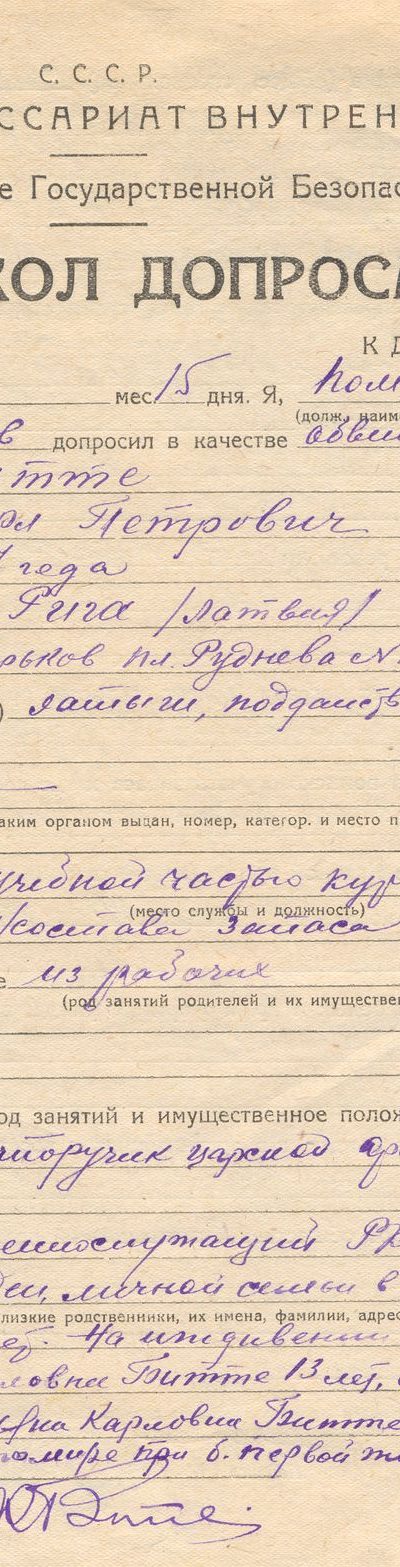 С. С. С. Р.
ССАРИАТ ВНУТРЕН
е Государственной Безопас
КОЛ ДОПРОСА
К Д
мес 15 дня. Я, Пом
(долж. наиме
в допросил в качестве обвин
итте
рл Петрович
года
Рига /Латвия/
рьков пл. Руднева №
) латыш, подданств
аким органом выдан, номер, категор. и место п
учебной частью кур
(место службы и должность)
состава запаса
е из рабочих
(род занятий родителей и их имуществен
од занятий и имущественное полож
поручик царской ар
еннослужащий РК
личной семьи в
лизкие родственники, их имена, фамилии, адрес
ет. На иждивении
ловна Битте 13 лет,
Карловна Битте
томире при б. первой ж